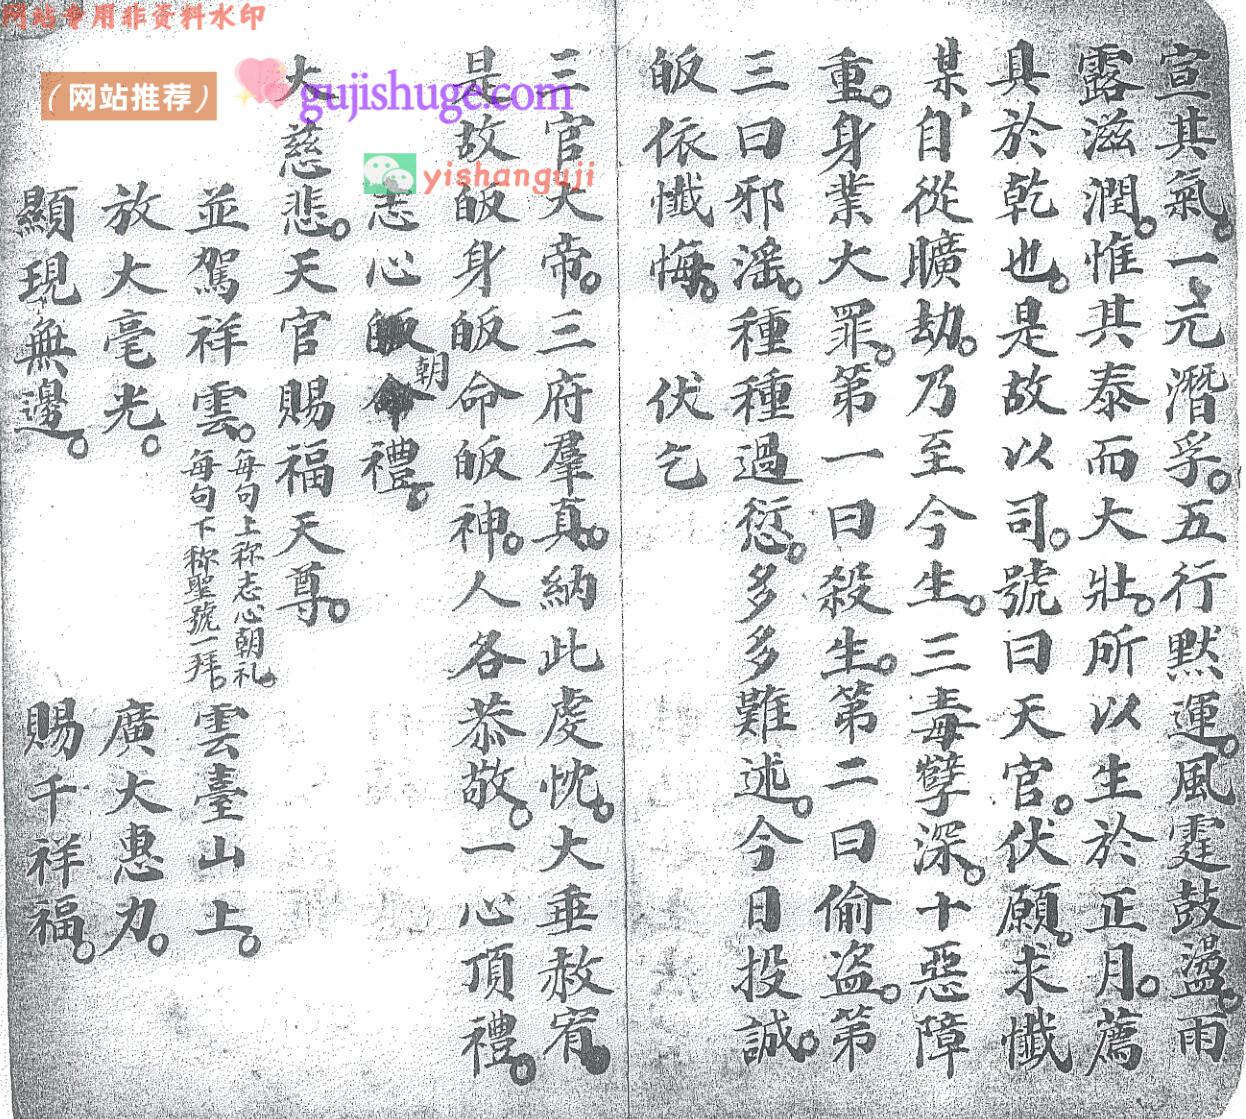 网站专用非资料水印
（网站推荐）
gujishuge.com
yishanguji
宣其氣。一元潛孚。五行默運。風霆鼓盪。雨
露滋潤。惟其泰而大壯。所以生於正月。薦
具於乾也。是故以司。號曰天官。伏願。求懺
某、自從曠劫。乃至今生。三毒孽深。十惡障
重。身業大罪。第一曰殺生。第二曰偷盜。第
三曰邪滛。種種過愆。多多難述。今日投誠。
皈依懺悔。伏乞
三官大帝。三府羣真。納此虔忱。大垂赦宥。
是故皈身皈命皈神。人各恭敬。一心頂禮。
志心皈命朝禮。
大慈悲。天官賜福天尊。
並駕祥雲。每句上称志心朝礼。每句下称聖號一拜。雲臺山上。
放大毫光。廣大惠力。
顯現無邊。賜千祥福。